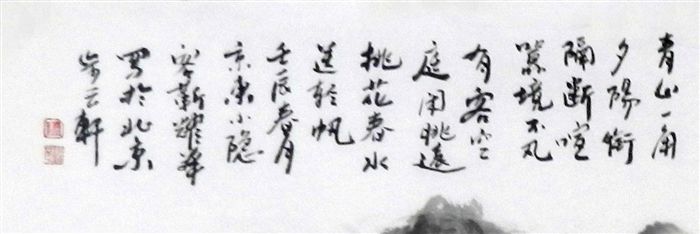 青山一角
夕陽銜
隔断喧
嚣境不凡
有客空
庭闲眺遠
桃花春水
送轻帆
壬辰春月
京东小隐
耀華
写於北京
云軒